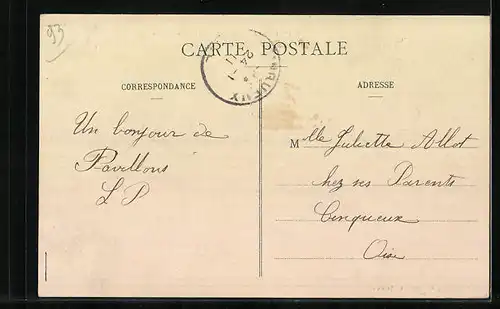 93
CARTE POSTALE
CORRESPONDANCE
ADRESSE
Un bonjour de
Pavillons
L P
Mlle Juliette Allot
chez ses Parents
Cinqueux
Oise